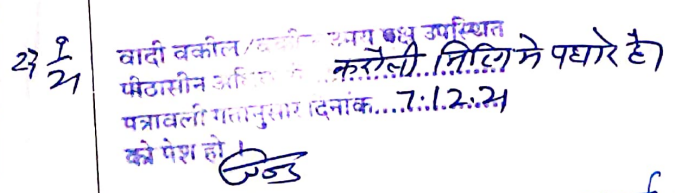 27 9/21
वादी वकील / उभय पक्ष उपस्थित
पीठासीन करौली मिटिंग मे पधारे है।
पत्रावली गतानुसार दिनांक....7.12.21
को पेश हो।